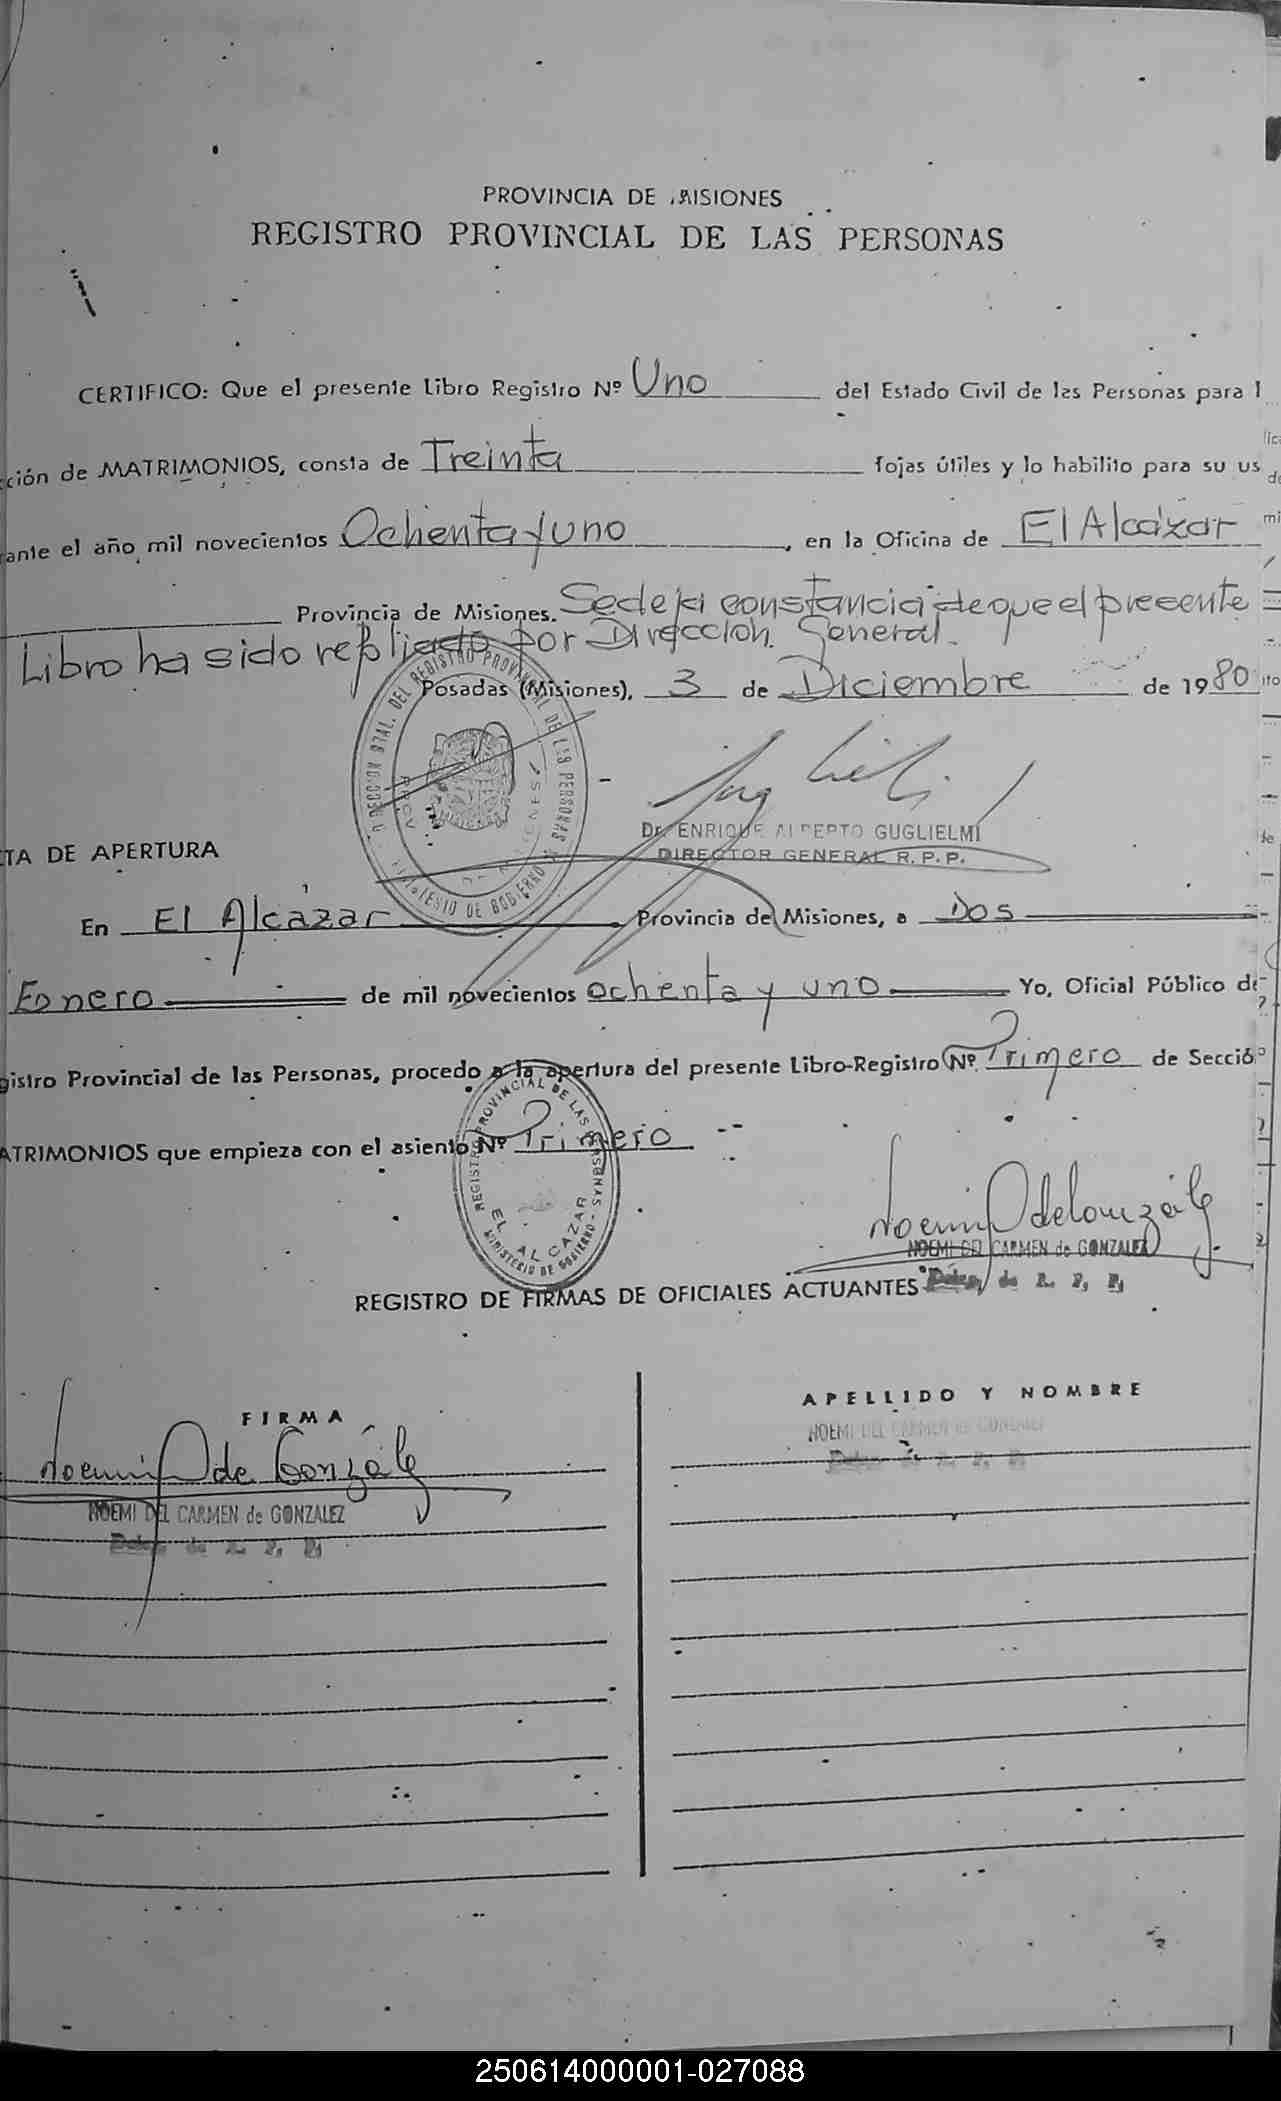 PROVINCIA DE MISIONES
REGISTRO PROVINCIAL DE LAS PERSONAS
CERTIFICO: Que el presente Libro Registro Nº Uno del Estado Civil de las Personas para l
ción de MATRIMONIOS, consta de Treinta fojas útiles y lo habilito para su us
rante el año mil novecientos Ochenta y uno, en la Oficina de El Alcázar
Provincia de Misiones. Se deja constancia de que el presente
Libro ha sido refoliado por Dirección General.
Posadas (Misiones), 3 de Diciembre de 1980
DIRECCION GRAL. DEL REGISTRO PROVINCIAL DE LAS PERSONAS
MINISTERIO DE GOBIERNO
Dr. ENRIQUE ALBERTO GUGLIELMI
DIRECTOR GENERAL R. P. P.
CTA DE APERTURA
En El Alcázar Provincia de Misiones, a Dos
Enero de mil novecientos ochenta y uno Yo, Oficial Público de
gistro Provincial de las Personas, procedo a la apertura del presente Libro-Registro Nº Primero de Secció
ATRIMONIOS que empieza con el asiento Nº Primero
REGISTRO PROVINCIAL DE LAS PERSONAS
EL ALCAZAR
MINISTERIO DE GOBIERNO
Noemi de González
NOEMI DEL CARMEN de GONZALEZ
de R. P. P.
REGISTRO DE FIRMAS DE OFICIALES ACTUANTES
FIRMA
APELLIDO Y NOMBRE
Noemi de González
NOEMI DEL CARMEN de GONZALEZ
de R. P. P.
NOEMI DEL CARMEN de GONZALEZ
de R. P. P.
250614000001-027088